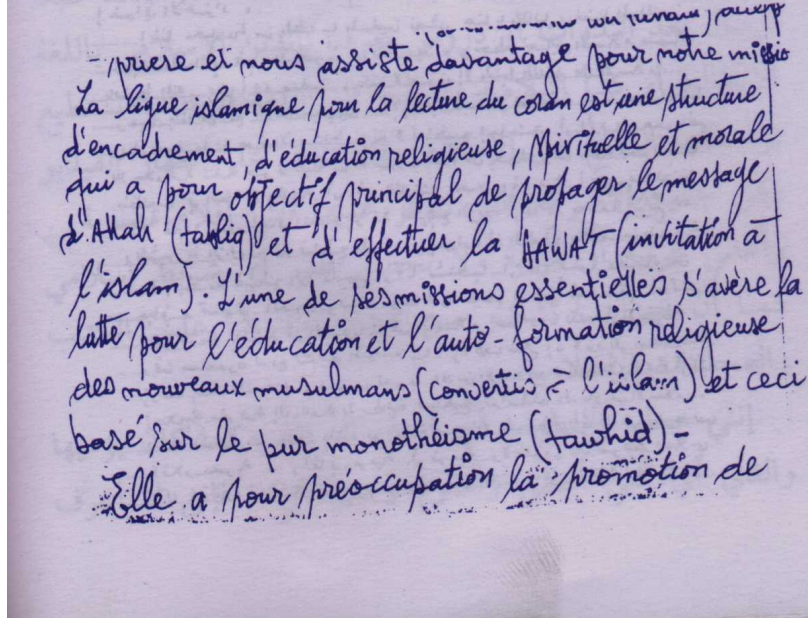 - prière et nous assiste davantage pour notre missio
La ligue islamique pour la lecture du coran est une structure
d'encadrement, d'éducation religieuse, spirituelle et morale
qui a pour objectif principal de propager le message
d'Allah (tabliq) et d'effectuer la DAWAT (invitation à
l'islam). L'une de ses missions essentielles s'avère la
lutte pour l'éducation et l'auto-formation religieuse
des nouveaux musulmans (convertis à l'islam) et ceci
basé sur le pur monothéisme (tawhid) -
Elle a pour préoccupation la promotion de